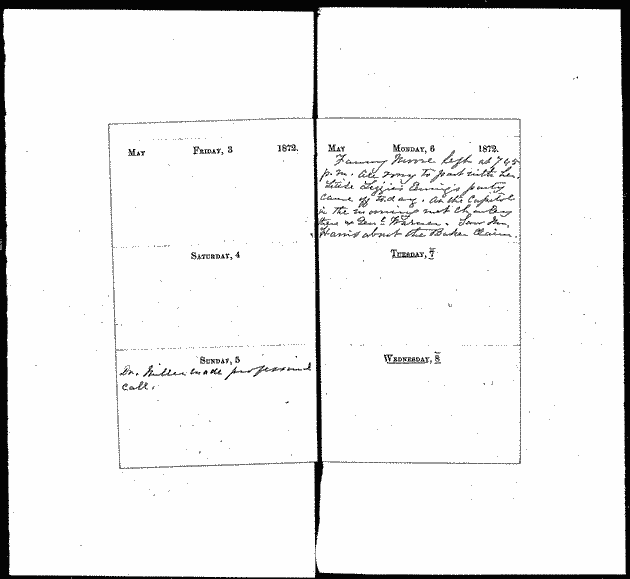 MAY FRIDAY, 3 1872.
SATURDAY, 4
SUNDAY, 5
Dr. Miller made professional
call.
MAY MONDAY, 6 1872.
Fanny Moore left at 7 45
p.m. All sorry to part with her.
Little Lizzie's party
came off to day. At the Capitol
in the morning met Charley
there & Gen'l
Harris about the Baker Claim.
TUESDAY, 7
WEDNESDAY, 8